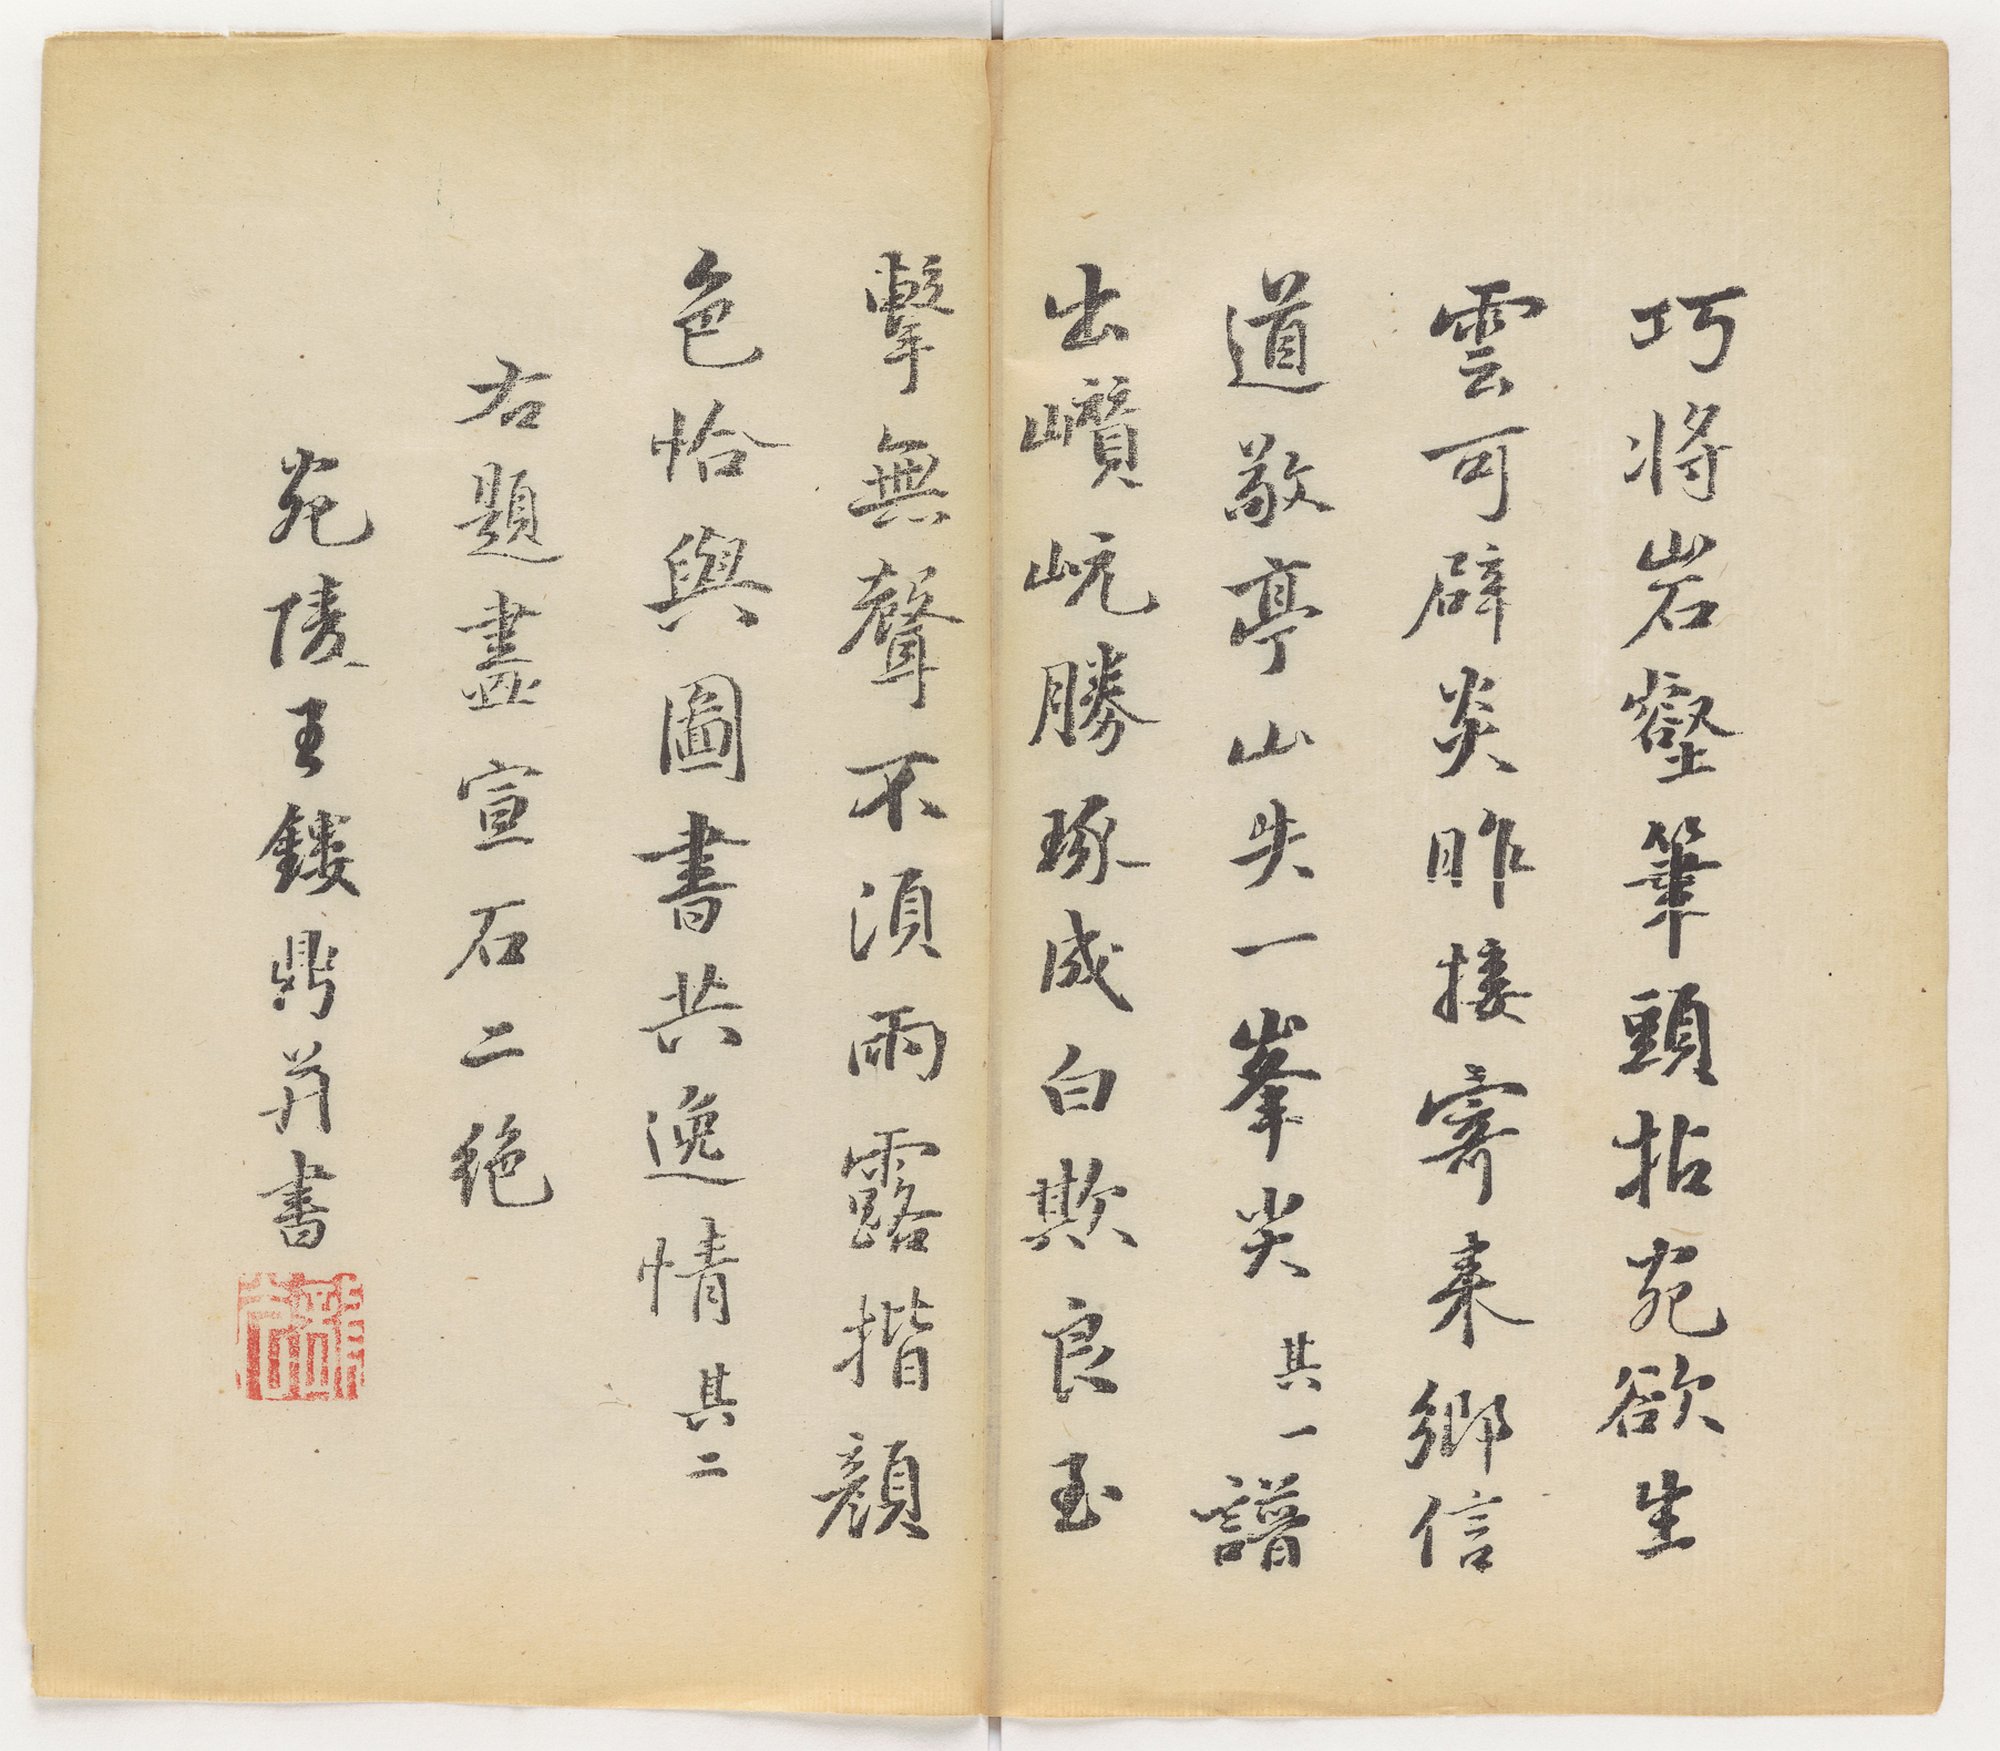 巧將岩壑筆頭拈宛欲生
雲可辟炎昨接寄来鄉信
道敬亭山失一峯尖 其一 譜
出巑岏勝琢成白欺良玉
擊無聲不湏雨露揩顏
色恰與圖書共逸情 其二
右題畫宣石二絕
宛陵王鏤鼎并書